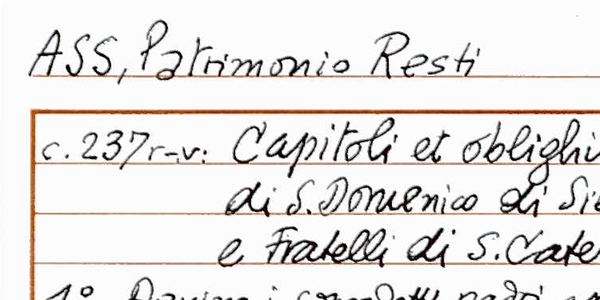 ASS, Patrimonio Resti
c. 237r-v: Capitoli et oblighi
di S. Domenico di Sie
e Fratelli di S. Cate
1°